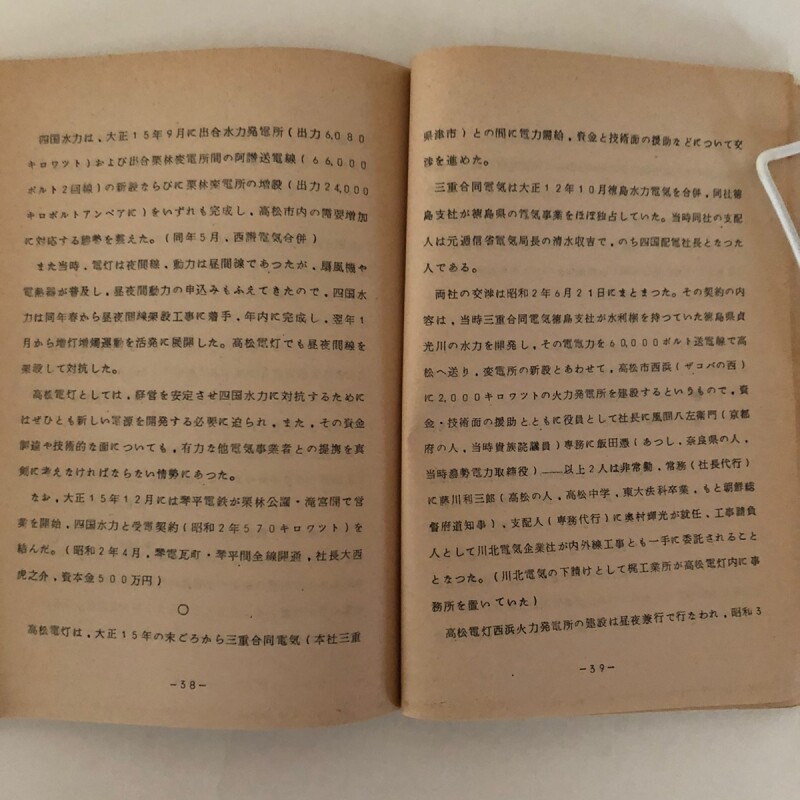 四国水力は、大正15年9月に出合水力発電所(出力6,080
キロワツト)および出合栗林変電所間の阿讃送電線(66,000
ボルト2回線)の新設ならびに栗林変電所の増設(出力24,000
キロボルトアンペアに)をいずれも完成し、高松市内の需要増加
に対応する態勢を整えた。(同年5月、西讃電気合併)
また当時、電灯は夜間線、動力は昼間線であつたが、扇風機や
電熱器が普及し、昼夜間動力の申込みもふえてきたので、四国水
力は同年春から昼夜間線架設工事に着手、年内に完成し、翌年1
月から増灯増燭運動を活発に展開した。高松電灯でも昼夜間線を
架設して対抗した。
高松電灯としては、経営を安定させ四国水力に対抗するために
はぜひとも新しい電源を開発する必要に迫られ、また、その資金
調達や技術的な面についても、有力な他電気事業者との提携を真
剣に考えなければならない情勢にあつた。
なお、大正15年12月には琴平電鉄が栗林公園・滝宮間で営
業を開始、四国水力と受電契約(昭和2年570キロワツト)を
結んだ。(昭和2年4月、琴電瓦町・琴平間全線開通、社長大西
虎之介、資本金500万円)
○
高松電灯は、大正15年の末ごろから三重合同電気(本社三重
－38－
県津市)との間に電力需給、資金と技術面の援助などについて交
渉を進めた。
三重合同電気は大正12年10月徳島水力電気を合併、同社徳
島支社が徳島県の電気事業をほぼ独占していた。当時同社の支配
人は元逓信省電気局長の清水収吉で、のち四国配電社長となつた
人である。
両社の交渉は昭和2年6月21日にまとまつた。その契約の内
容は、当時三重合同電気徳島支社が水利権を持つていた徳島県貞
光川の水力を開発し、その電力を60,000ボルト送電線で高
松へ送り、変電所の新設とあわせて、高松市西浜(ザコバの西)
に2,000キロワツトの火力発電所を建設するというもので、資
金・技術面の援助とともに役員として社長に風間八左衛門(京都
府の人、当時貴族院議員)専務に飯田憑(あつし、奈良県の人、
当時島勢電力取締役)——以上2人は非常勤、常務(社長代行)
に藤川利三郎(高松の人、高松中学、東大法科卒業、もと朝鮮総
督府道知事)、支配人(専務代行)に奥村輝光が就任、工事請負
人として川北電気企業社が内外線工事とも一手に委託されること
となつた。(川北電気の下請けとして梶工業所が高松電灯内に事
務所を置いていた)
高松電灯西浜火力発電所の建設は昼夜兼行で行なわれ、昭和3
－39－